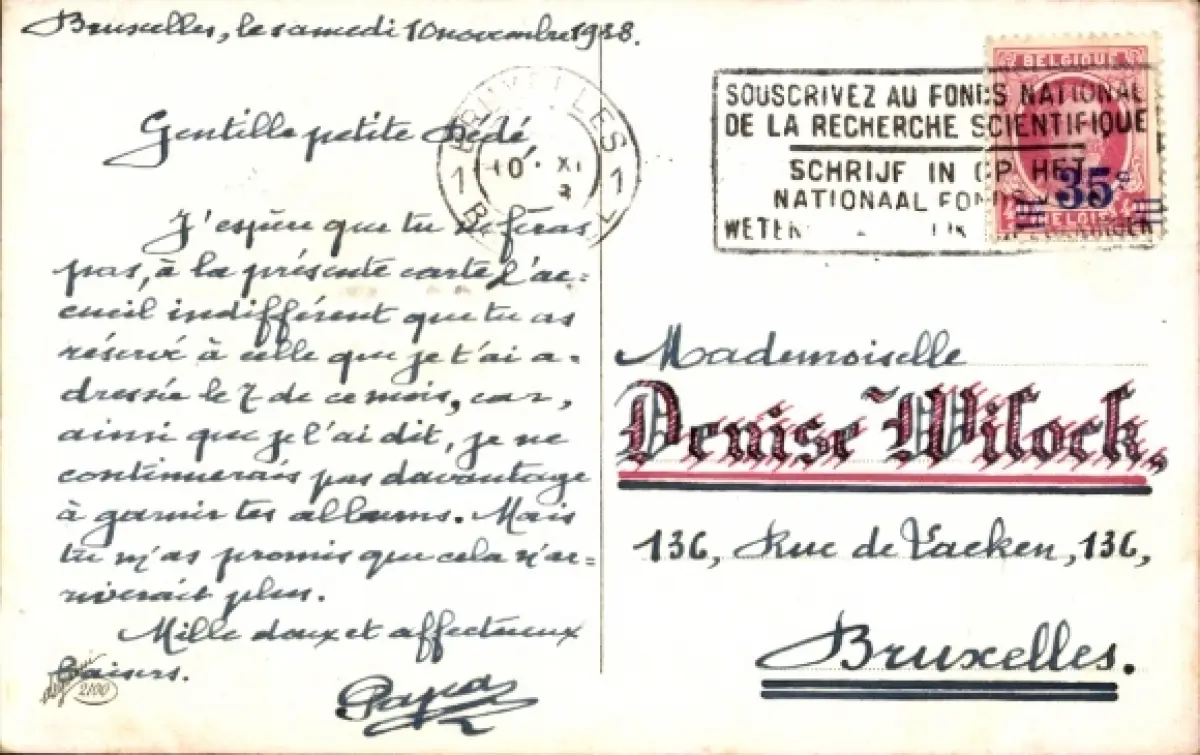 Bruxelles, le samedi 10 novembre 1928.
Gentille petite Dédé
J'espère que tu ne feras
pas, à la présente carte l'ac=
cueil indifférent que tu as
réservé à celle que je t'ai a-
dressée le 7 de ce mois, car,
ainsi que je l'ai dit, je ne
continuerais pas davantage
à garnir tes albums. Mais
tu m'as promis que cela n'ar=
riverait plus.
Mille doux et affectueux
baisers.
Papa
2100
BRUXELLES
1 10 XI 1
B
SOUSCRIVEZ AU FONDS NATIONAL
DE LA RECHERCHE SCIENTIFIQUE
SCHRIJF IN OP HET
NATIONAAL FONDS
BELGIQUE
35c
BELGIË
Mademoiselle
Denise Wilock,
136, Rue de Laeken, 136,
Bruxelles.